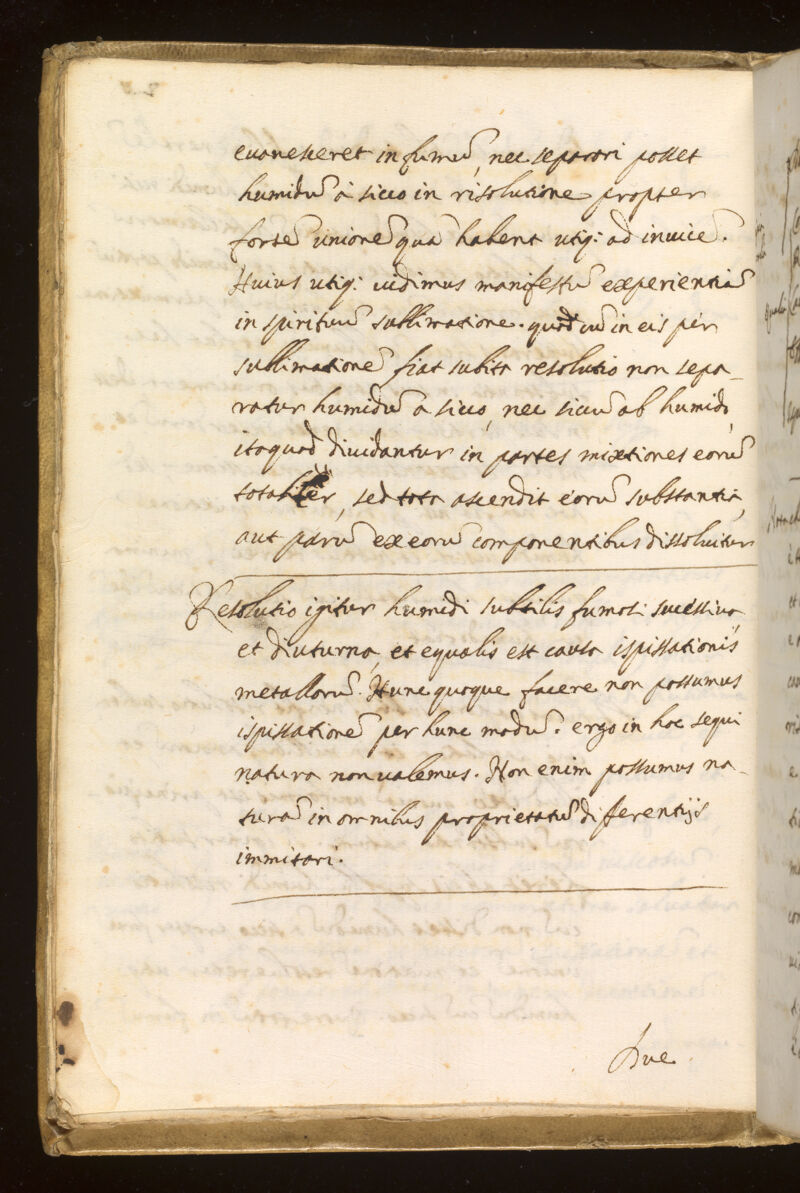 evanesceret in fumū, nec separari posset
humidū à sicco in risolutione propter
fortē unionē quā habent utiq: ad invicē.
Huius utiq: vidimus manifestū experientiā
in spirituū sullimatione. quod cū in eis per
sullimationē fiat subita resolutio non sepa-
ratur humidū a sicco, nec siccū ab humido,
ita quod dividantur in partes mixtiones eorū
totaliter, sed tota ascendit eorū substantia,
aut parū ex eorū componentibus dissolvitur
Resolutio igitur humidi subtilis fumosi successiva,
et diuturna, et equalis est causa ispissationis
metallorū. Hunc quoque facere non possumus
ispissationē per hunc modū. ergo in hoc sequi
natura non valemus. Non enim possumus na-
turā in omnibus proprietatū differentijs
immitari.
Quę